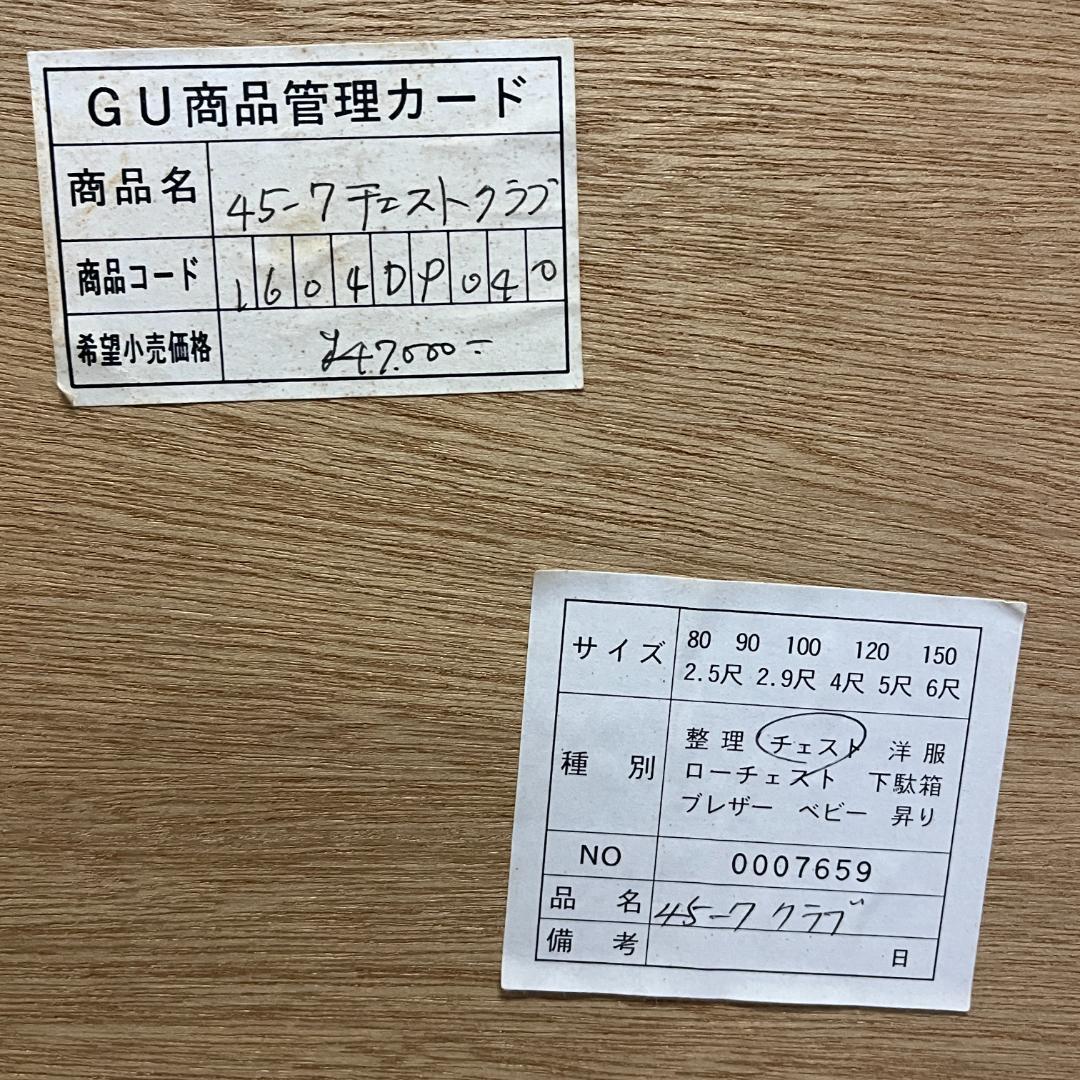 GU商品管理カード
商品名 45-7 チェストクラブ
商品コード 1604D9040
希望小売価格 ¥47.000-
サイズ 80 90 100 120 150
2.5尺 2.9尺 4尺 5尺 6尺
種別 整理 チェスト 洋服
ローチェスト 下駄箱
ブレザー ベビー 昇り
NO 0007659
品名 45-7 クラブ
備考 日